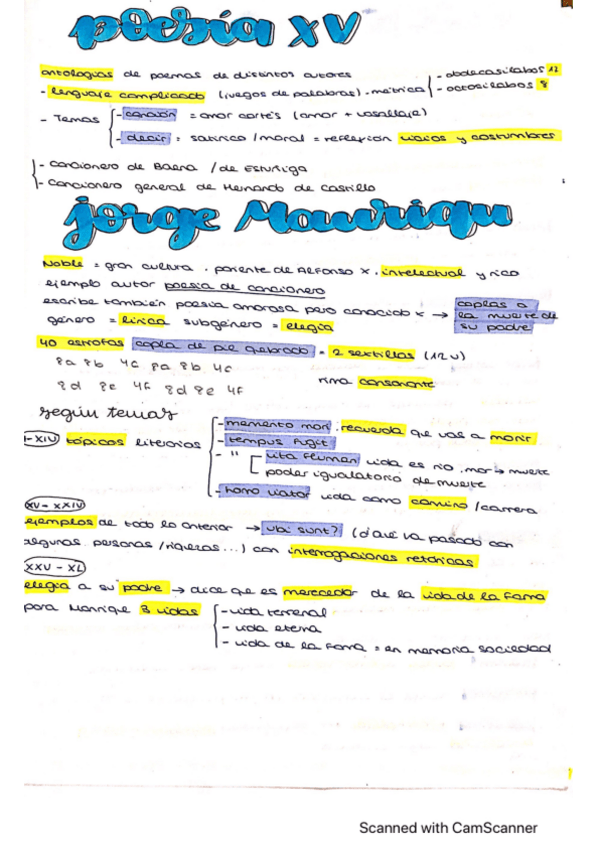 poesía XV
antologías de poemas de distintos autores
- lenguaje complicado (juegos de palabras) . métrica - dodecasílabos 12
- octosílabos 8
- Temas - canción = amor cortés (amor + vasallaje)
- decir = satírico / moral = reflexión vicios y costumbres
- Cancionero de Baena / de Estuñiga
- Cancionero general de Hernando de Castillo
jorge Manrique
Noble = gran cultura . pariente de Alfonso X . intelectual y rico
ejemplo autor poesía de cancionero
escribe también poesía amorosa pero conocido x → coplas a la muerte de su padre
género = lírica subgénero = elegía
40 estrofas copla de pie quebrado = 2 sextillas (12 v)
8a 8b 4c 8a 8b 4c
8d 8e 4f 8d 8e 4f rima consonante
según temas
I-XIV tópicos literarios - memento mori . recuerda que vas a morir
- tempus fugit
- " vita flumen vida es río . mar → muerte
poder igualatorio de muerte
- homo viator vida como camino / carrera
XV - XXIV
ejemplos de todo lo anterior → ubi sunt? (d qué va pasado con
algunas personas / riquezas ...) con interrogaciones retóricas
XXV - XL
elegía a su padre → dice que es merecedor de la vida de la fama
para Manrique 3 vidas - vida terrenal
- vida eterna
- vida de la fama = en memoria sociedad
Scanned with CamScanner